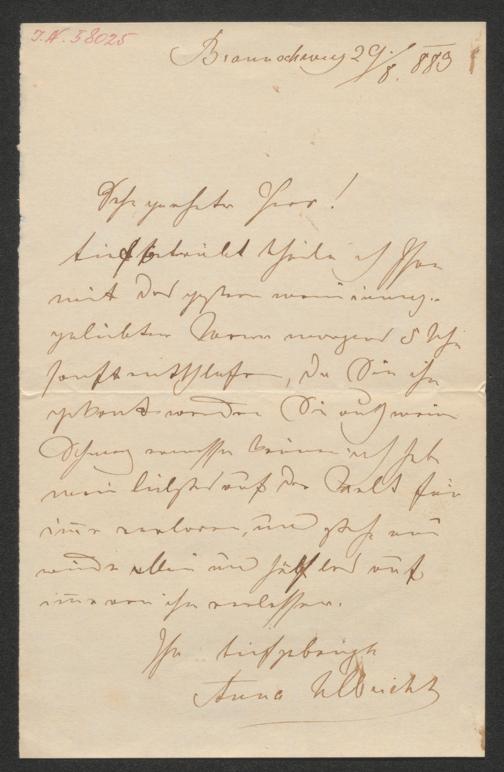 J.N. 58025
Braunschweig 29/8. 883
Sehr geehrter Herr!
tief betrübt theile ich Ihnen
mit das gestern mein innig-
geliebter Mann morgens 5 Uhr
sanft entschlafen, da Sie ihn
gekannt werden Sie auch mein
Schmerz ermessen können ich habe
mein liebstes auf der Welt für
immer verloren, und stehe nun
wieder allein und hülflos auf
immer von ihm verlassen.
Ihre tiefgebeugte
Anna Ulbricht